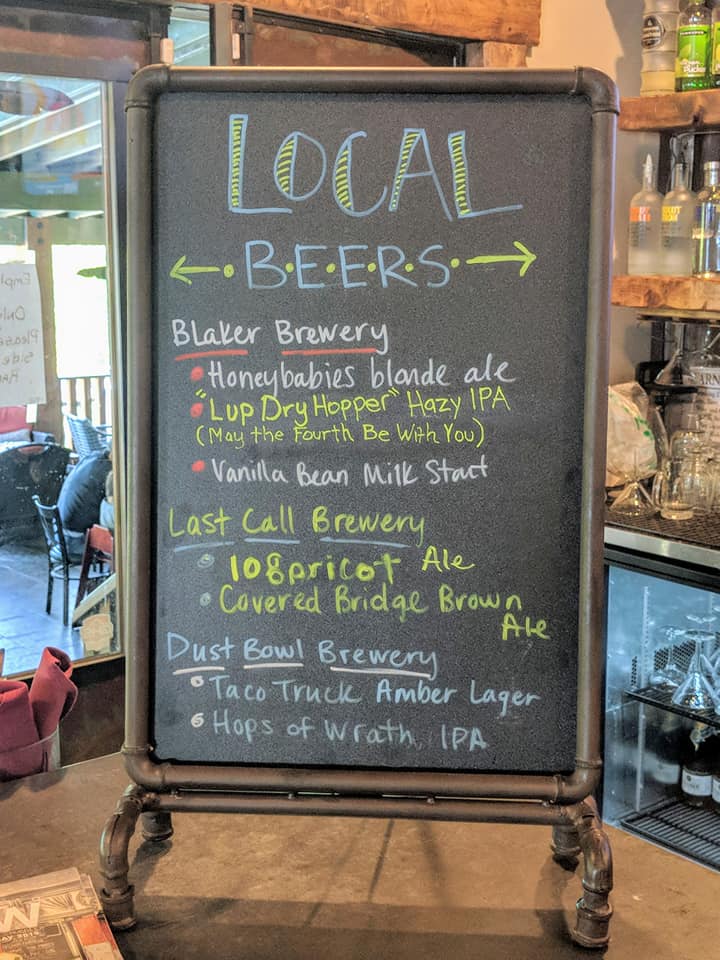 LOCAL
B·E·E·R·S
Blaker Brewery
• Honeybabies blonde ale
• "Lup Dry Hopper" Hazy IPA
(May the Fourth Be With You)
• Vanilla Bean Milk Stout
Last Call Brewery
• 108pricot Ale
• Covered Bridge Brown
Ale
Dust Bowl Brewery
• Taco Truck Amber Lager
• Hops of Wrath IPA